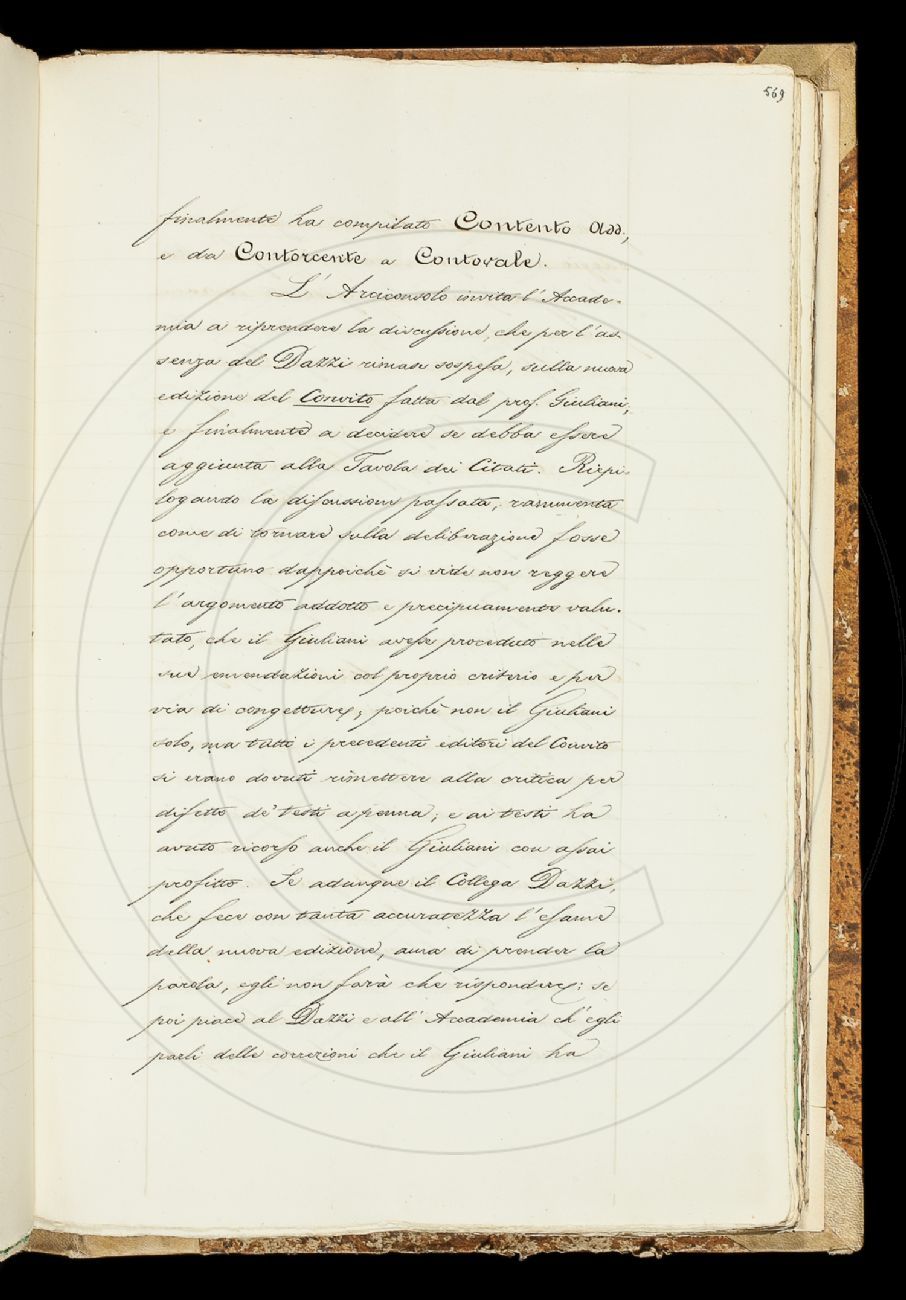 569
finalmente ha compilato Contento Add.,
e da Contorcente a Contovale.
L'Arciconsolo invita l'Accade-
mia a riprendere la discussione, che per l'as-
senza del Dazzi rimase sospesa, sulla nuova
edizione del Convito fatta dal prof. Giuliani,
e finalmente a decidere se debba essere
aggiunta alla Tavola dei Citati. Riepi-
logando la discussione passata, rammenta
come di tornare sulla deliberazione fosse
opportuno dappoichè si vide non reggere
l'argomento addotto e precipuamente valu-
tato, che il Giuliani avesse proceduto nelle
sue emendazioni col proprio criterio e per
via di congetture; poichè non il Giuliani
solo, ma tutti i precedenti editori del Convito
si erano dovuti rimettere alla critica per
difetto de' testi a penna; e ai testi ha
avuto ricorso anche il Giuliani con assai
profitto. Se adunque il Collega Dazzi,
che fece con tanta accuratezza l'esame
della nuova edizione, ama di prender la
parola, egli non farà che rispondere; se
poi piace al Dazzi e all'Accademia ch'egli
parli delle correzioni che il Giuliani ha